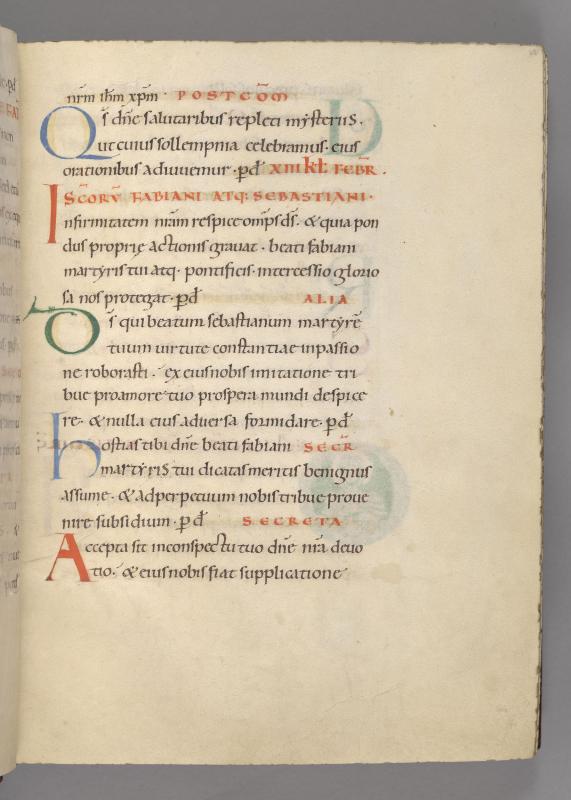 nr̄m ih̄m xp̄m · POSTCŌM
Qs̄ dn̄e salutaribus repleti mysteriis ·
Ut cuius sollempnia celebramus · eius
orationibus adiuvemur · p̄d XIII kƚ FEBR̄ ·
SC̄ORV̄ FABIANI ATQ: SEBASTIANI ·
Infirmitatem nr̄am respice omp̄s ds̄ · & quia pon
dus proprię actionis gravat · beati fabiani
martyris tui atq · pontificis · intercessio glorio
sa nos protegat · p̄d ALIA
Ds̄ qui beatum sebastianum martyrē
tuum virtute constantiae inpassio
ne roborasti · ex eius nobis imitatione tri
bue proamore tuo prospera mundi despice
re · & nulla eius adversa formidare · p̄d
hostias tibi dn̄e beati fabiani SECR̄
martyris tui dicatas meritis benignus
assume · & adperpetuum nobis tribue prove
nire subsidium · p̄d SECRETA
Accepta sit inconspectu tuo dn̄e nr̄a devo
tio · & eius nobis fiat supplicatione